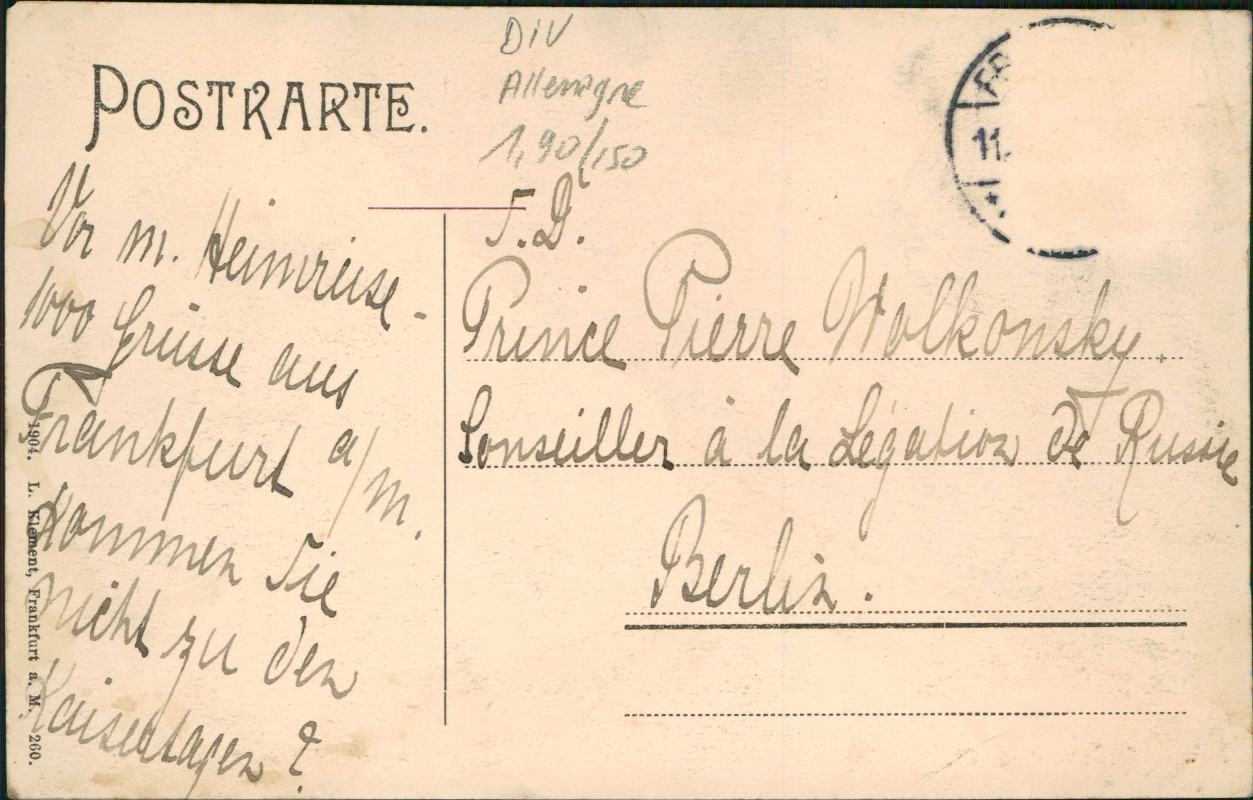 POSTKARTE.
DIV
Allemagne
1,90/150
FR
11.
Vor m. Heimreise -
1000 Grüsse aus
Frankfurt a/m.
Kommen Sie
nicht zu den
Kaisertagen?
S.D.
Prince Pierre Wolkonsky.
Conseiller à la Légation de Russie
Berlin.
1904. L. Klement, Frankfurt a. M. 260.